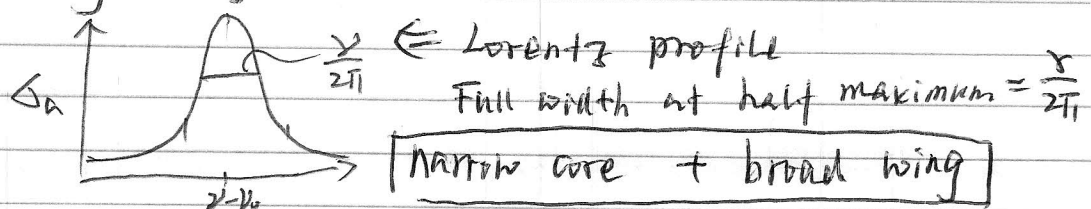 σₐ
γ/2π ⇐ Lorentz profile
Full width at half maximum = γ/2π
narrow core + broad wing
ν-ν₀